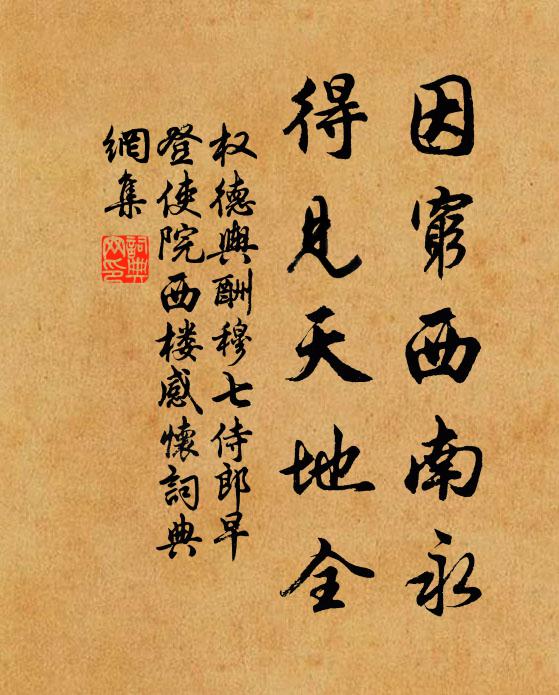 因窮西南永
得見天地全
权德輿酬穆七侍郎早
登使院西楼感懷詞典
網集
詞典
网印